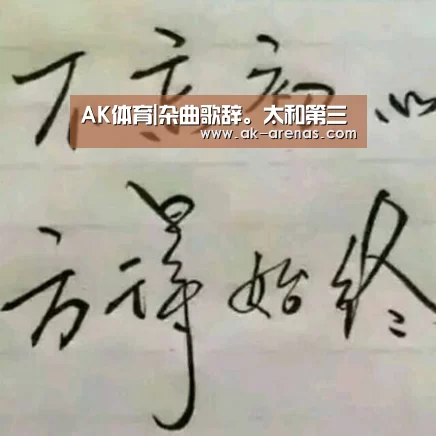 不忘初心
AK体育|杂曲歌辞。太和第三
www.ak-arenas.com
方得始终